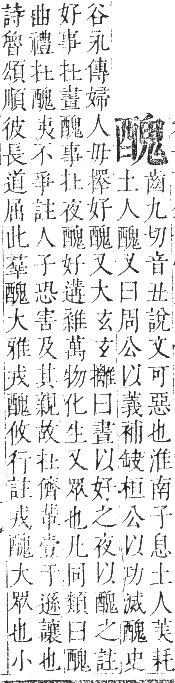 醜
齒九切音丑說文可惡也淮南子息土人美耗
土人醜又曰周公以義補缺桓公以功滅醜史
谷永傳婦人毋擇好醜又大玄玄攡曰晝以好之夜以醜之註
好事在晝醜事在夜醜好遘雜萬物化生又眾也凡同類曰醜
曲禮在醜夷不爭註人子恐害及其親故在儕輩壹于遜讓也
詩魯頌順彼長道屈此羣醜大雅戎醜攸行註戎醜大眾也小